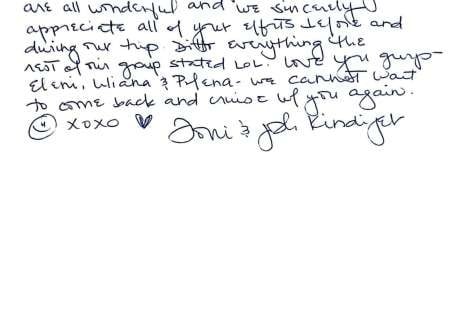 are all wonderful and we sincerely
appreciate all of your efforts before and
during our trip. Ditto everything the
rest of our group stated LOL. Love you guys-
Eleni, Uliana & - we cannot wait
to come back and cruise w/ you again.
☺ XOXO ♥ Joni &